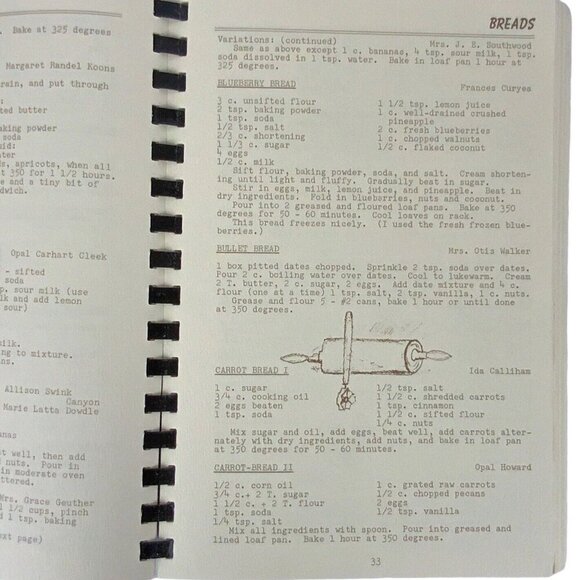 . Bake at 325 degrees
Margaret Randel Koons
rain, and put through
:
ted butter
aking powder
soda
uid:
ater
ds, apricots, when all
at 350 for 1 1/2 hours.
e and a tiny bit of
dwich.
Opal Carhart Cleek
- sifted
soda
p. sour milk (use
lk and add lemon
sour)
milk.
ing to mixture.
ans.
Allison Swink
Canyon
Marie Latta Dowdle
anas
t well, then add
d nuts. Pour in
in moderate oven
ttered.
Mrs. Grace Geuther
1/2 cups, pinch
d 1 tsp. baking
ext page)
BREADS
Variations: (continued) Mrs. J. E. Southwood
Same as above except 1 c. bananas, 4 tsp. sour milk, 1 tsp.
soda dissolved in 1 tsp. water. Bake in loaf pan 1 hour at
325 degrees.
BLUEBERRY BREAD Frances Curyea
3 c. unsifted flour
2 tsp. baking powder
1 tsp. soda
1/2 tsp. salt
2/3 c. shortening
1 1/3 c. sugar
4 eggs
1/2 c. milk
1 1/2 tsp. lemon juice
1 c. well-drained crushed
pineapple
2 c. fresh blueberries
1 c. chopped walnuts
1/2 c. flaked coconut
Sift flour, baking powder, soda, and salt. Cream shorten-
ing until light and fluffy. Gradually beat in sugar.
Stir in eggs, milk, lemon juice, and pineapple. Beat in
dry ingredients. Fold in blueberries, nuts and coconut.
Pour into 2 greased and floured loaf pans. Bake at 350
degrees for 50 - 60 minutes. Cool loaves on rack.
This bread freezes nicely. (I used the fresh frozen blue-
berries.)
BULLET BREAD Mrs. Otis Walker
1 box pitted dates chopped. Sprinkle 2 tsp. soda over dates.
Pour 2 c. boiling water over dates. Cool to lukewarm. Cream
2 T. butter, 2 c. sugar, 2 eggs. Add date mixture and 4 c.
flour (one at a time) 1 tsp. salt, 2 tsp. vanilla, 1 c. nuts.
Grease and flour 5 - #2 cans, bake 1 hour or until done
at 350 degrees.
CARROT BREAD I Ida Calliham
1 c. sugar
3/4 c. cooking oil
2 eggs beaten
1 tsp. soda
1/2 tsp. salt
1 1/2 c. shredded carrots
1 tsp. cinnamon
1 1/2 c. sifted flour
1/4 c. nuts
Mix sugar and oil, add eggs, beat well, add carrots alter-
nately with dry ingredients, add nuts, and bake in loaf pan
at 350 degrees for 50 - 60 minutes.
CARROT-BREAD II Opal Howard
1/2 c. corn oil
3/4 c.+ 2 T. sugar
1 1/2 c. + 2 T. flour
1 tsp. soda
1/4 tsp. salt
1 c. grated raw carrots
1/2 c. chopped pecans
2 eggs
1/2 tsp. vanilla
Mix all ingredients with spoon. Pour into greased and
lined loaf pan. Bake 1 hour at 350 degrees.
33